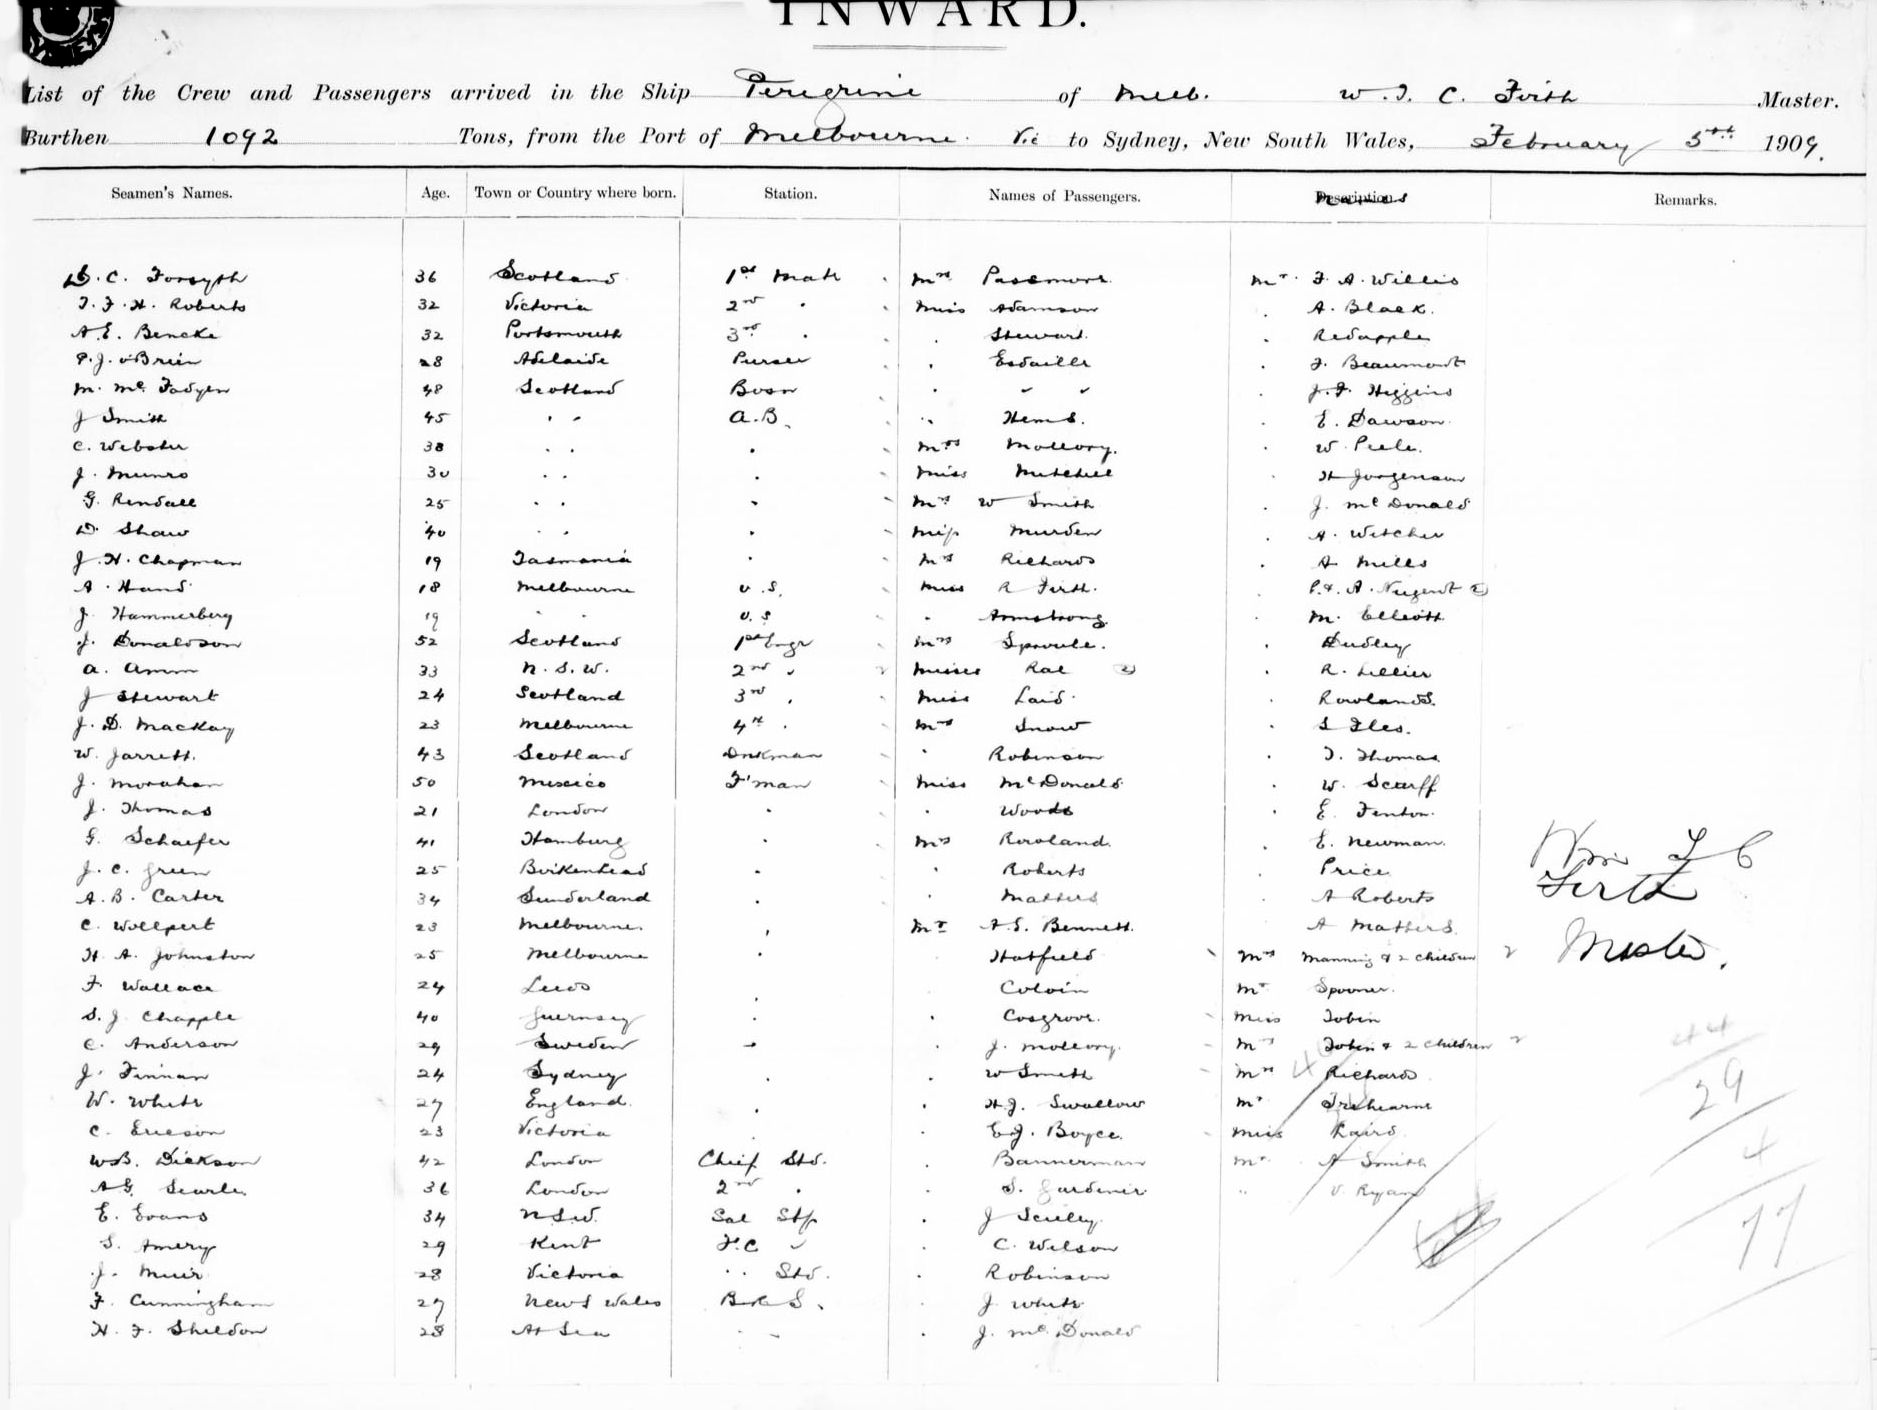 INWARD.
List of the Crew and Passengers arrived in the Ship Peregrine of Melb. W. T. C. Firth Master.
Burthen 1092 Tons, from the Port of Melbourne Vic to Sydney, New South Wales, February 5th 1909.
Seamen's Names. Age. Town or Country where born. Station. Names of Passengers. Names Remarks.
D. C. Forsyth 36 Scotland 1st Mate Mrs Passmore Mr F. A. Willis
T. F. H. Roberts 32 Victoria 2nd " Miss Adamson " A. Black
A. E. Bencke 32 Portsmouth 3rd " " Stewart " Redapple
P. J. O'Brien 28 Adelaide Purser " Esdaille " F. Beaumont
M. McFadyen 48 Scotland Bosn " " " " J. F. Higgins
J Smith 45 " " A.B. " Hems. " E. Dawson
C. Webster 38 " " " Mrs Mallory. " W Peele.
J. Munro 30 " " " Miss Mitchell " H Jorgenson
G. Rendall 25 " " " Mrs W Smith " J. McDonald
D. Shaw 40 " " " Miss Murden " A. Witcher
J. H. Chapman 19 Tasmania " Mrs Richards " A Mills
A. Hand 18 Melbourne O.S. Miss R Firth. " P. & A. Nugent 2
J. Hammerberg 19 " " O.S " Armstrong " M. Elliott
J. Donaldson 52 Scotland 1st Engr Mrs Sproule. " Dudley
A. Amm 33 N.S.W. 2nd " 2 Misses Rae 2 " R. Lellier
J Stewart 24 Scotland 3rd " Miss Laid " Rowlands.
J. D. Mackay 23 Melbourne 4th " Mrs Snow " S Iles.
W. Jarrett. 43 Scotland Dnkman " Robinson " T. Thomas
J. Morahan 50 Mexico F'man Miss McDonald " W. Scarff
J. Thomas 21 London " " Woods " E. Fenton
G. Schaefer 41 Hamburg " Mrs Rowland " E. Newman.
J. C. Green 25 Birkenhead " " Roberts " Price
A. B. Carter 34 Sunderland " " Matters " A Roberts
C. Wollpert 23 Melbourne " Mr A. S. Bennett. " A Matters
H. A. Johnston 25 Melbourne " " Hatfield Mrs Manning & 2 children 2
F. Wallace 24 Leeds " " Colvin Mr Spooner.
S. J. Chapple 40 Guernsey " " Cosgrove. Miss Tobin
C. Anderson 29 Sweden " " J. Mallory. Mrs Tobin & 2 children 2
J. Finnan 24 Sydney " " W Smith Mrs Richards
W. White 27 England " " H. J. Swallow Mr Trehearne
C. Ericson 23 Victoria " E. J. Boyce. Miss Laird
W. B. Dickson 42 London Chief Std. " Bannerman Mr A Smith
A. G. Searle. 36 London 2nd " " S. Gardener " V. Ryan
E. Evans 34 N.S.W. Sal Std " J Sculley.
S. Amery 29 Kent F.C " " C. Wilson
J. Muir 28 Victoria " Std. " Robinson
F. Cunningham 27 New S Wales B.R.S. " J White
H. F. Sheldon 28 At Sea " " " J. McDonald
Wm T C
Firth
Master.
44
29
4
77